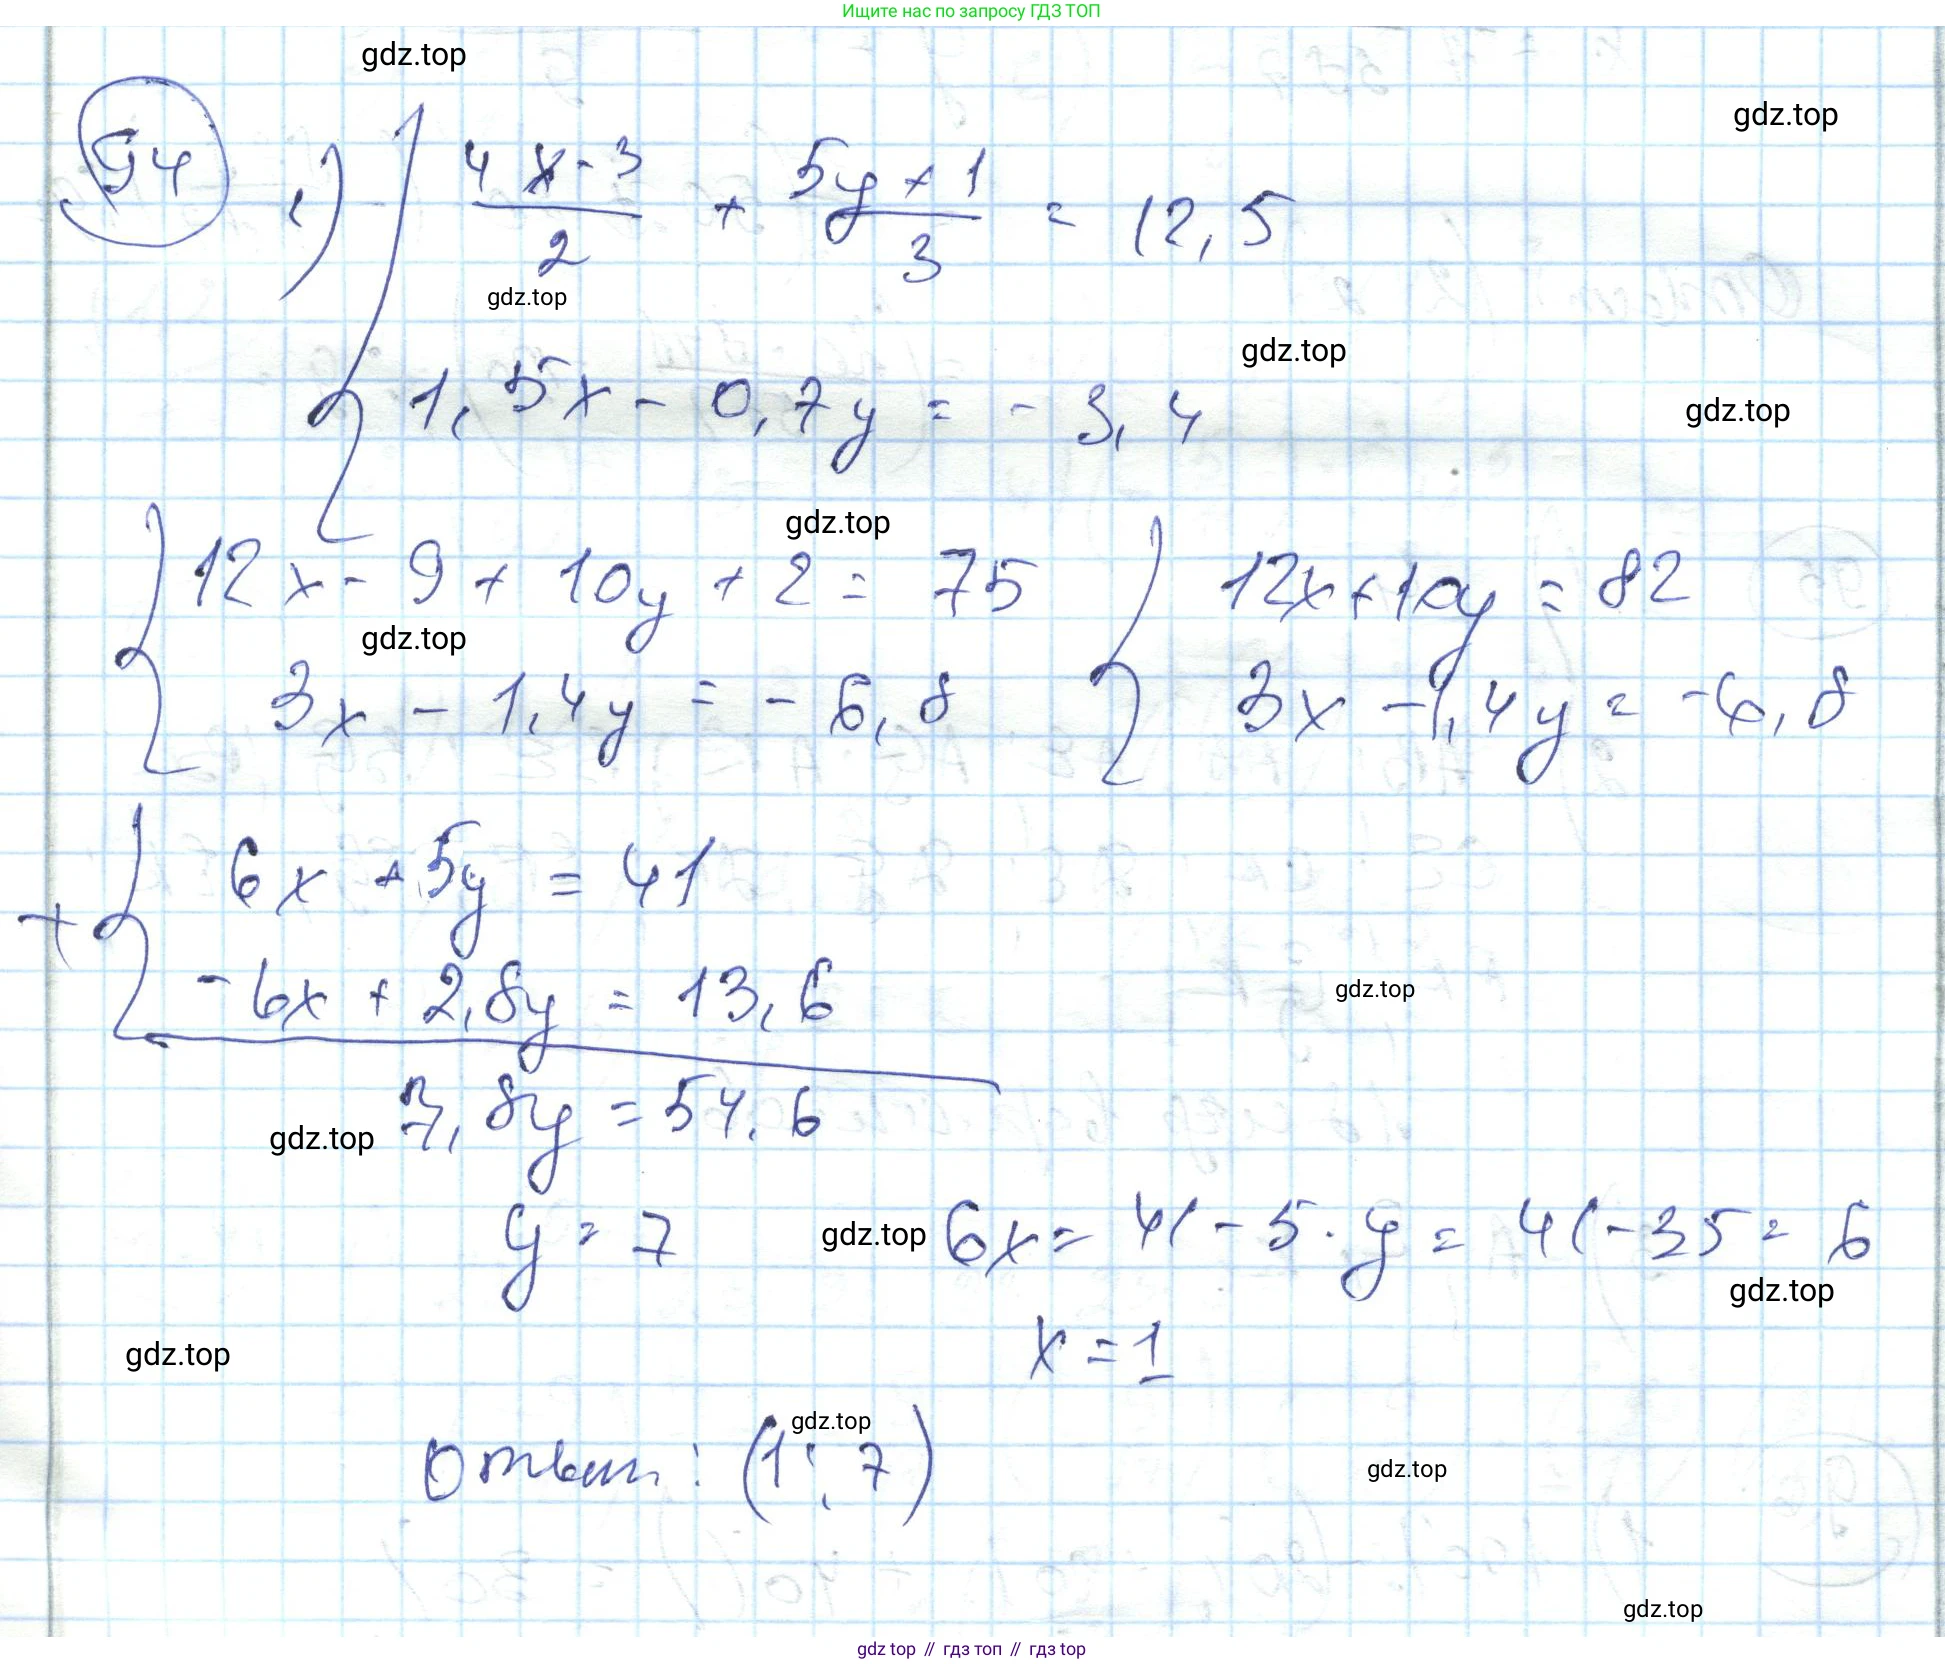 Ищите нас по запросу ГДЗ ТОП
gdz.top
gdz.top
94 1) { (4x - 3)/2 + (5y + 1)/3 = 12,5
gdz.top
gdz.top
1,5x - 0,7y = - 3,4
gdz.top
gdz.top
{ 12x - 9 + 10y + 2 = 75 { 12x + 10y = 82
gdz.top
3x - 1,4y = - 6,8 3x - 1,4y = - 6,8
+ { 6x + 5y = 41
- 6x + 2,8y = 13,6
gdz.top
7,8y = 54,6
gdz.top
y = 7 gdz.top 6x = 41 - 5 · y = 41 - 35 = 6
gdz.top
x = 1
gdz.top
gdz.top
Ответ: (1; 7)
gdz.top
gdz.top
gdz top // гдз топ // гдз top